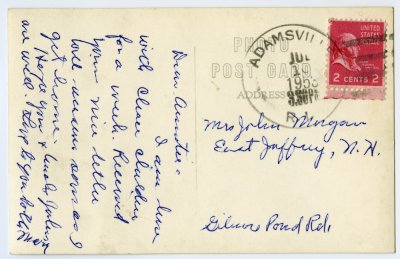 Dear Auntie:
I am here
with Clara
for a week. Received
your nice letter
will answer soon as I
get home.
Hope you & Uncle
are well. Love to you both,
PHOTO
POST CARD
ADDRESS
ADAMSVILLE
JUL
19
1953
R.I.
UNITED STATES POSTAGE
2 CENTS 2
Mrs John Morgan
East Jaffrey, N. H.
Gilmore Pond Rd.